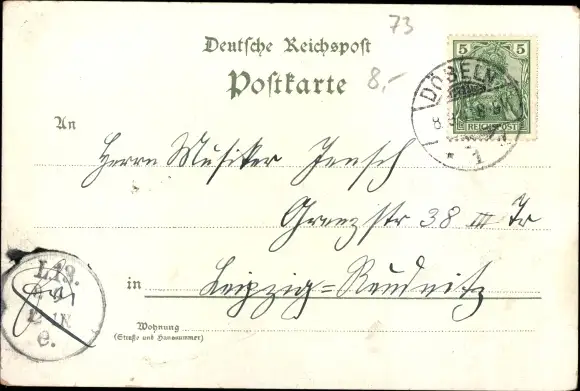 73
Deutsche Reichspost
Postkarte
8,-
5 5
DÖBELN
8. 8-9N
REICHSPOST
* 1
An
Herrn Musiker Jensch
Grenzstr 38 III Tr
in Leipzig=Reudnitz
L.13.
e.
Wohnung
(Straße und Hausnummer)